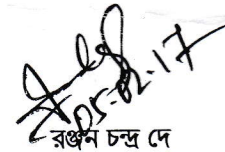 05-02-17
রঞ্জন চন্দ্র দে